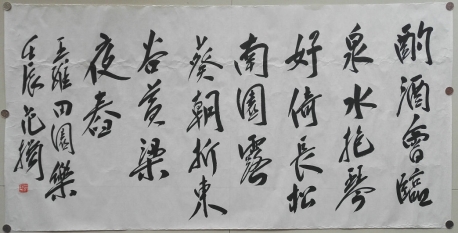 酌酒會臨
泉水抱琴
好倚長松
南園露
葵朝折東
谷黃梁
夜舂
王維田園樂
壬辰范